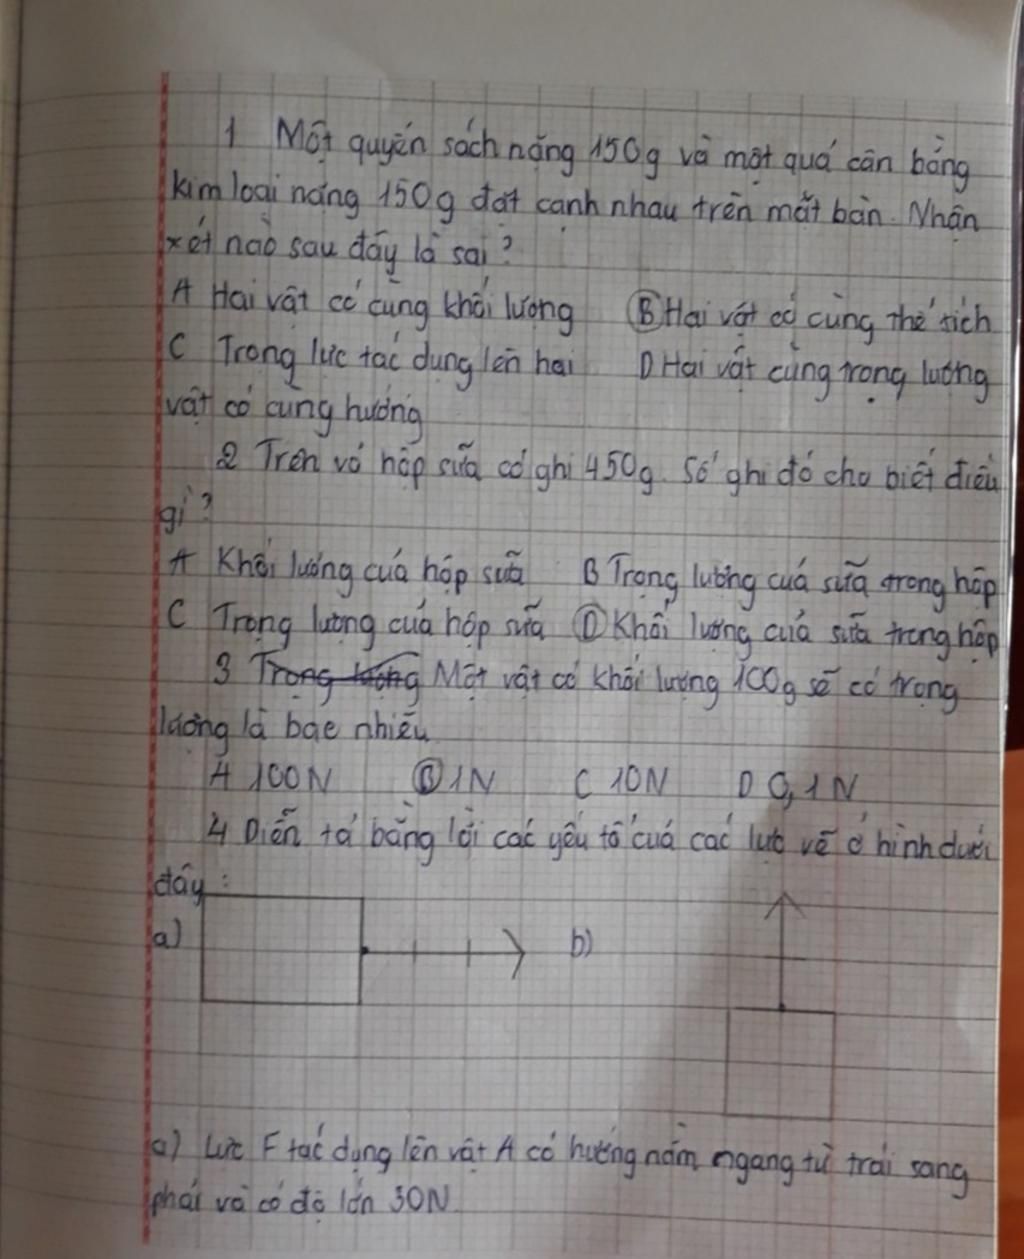 1 Một quyển sách nặng 150g và một quả cân bằng
kim loại nặng 150g đặt cạnh nhau trên mặt bàn. Nhận
xét nào sau đây là sai?
A Hai vật có cùng khối lượng B Hai vật có cùng thể tích
C Trọng lực tác dụng lên hai D Hai vật cùng trọng lượng
vật có cùng hướng
2 Trên vỏ hộp sữa có ghi 450g. Số ghi đó cho biết điều
gì?
A Khối lượng của hộp sữa B Trọng lượng của sữa trong hộp
C Trọng lượng của hộp sữa D Khối lượng của sữa trong hộp
3 Trọng lượng Một vật có khối lượng 100g sẽ có trọng
lượng là bae nhiêu
A 100N B 1N C 10N D 0,1N
4 Diễn tả bằng lời các yếu tố của các lực vẽ ở hình dưới
đây:
a) b)
a) Lực F tác dụng lên vật A có hướng nằm ngang từ trái sang
phải và có độ lớn 30N